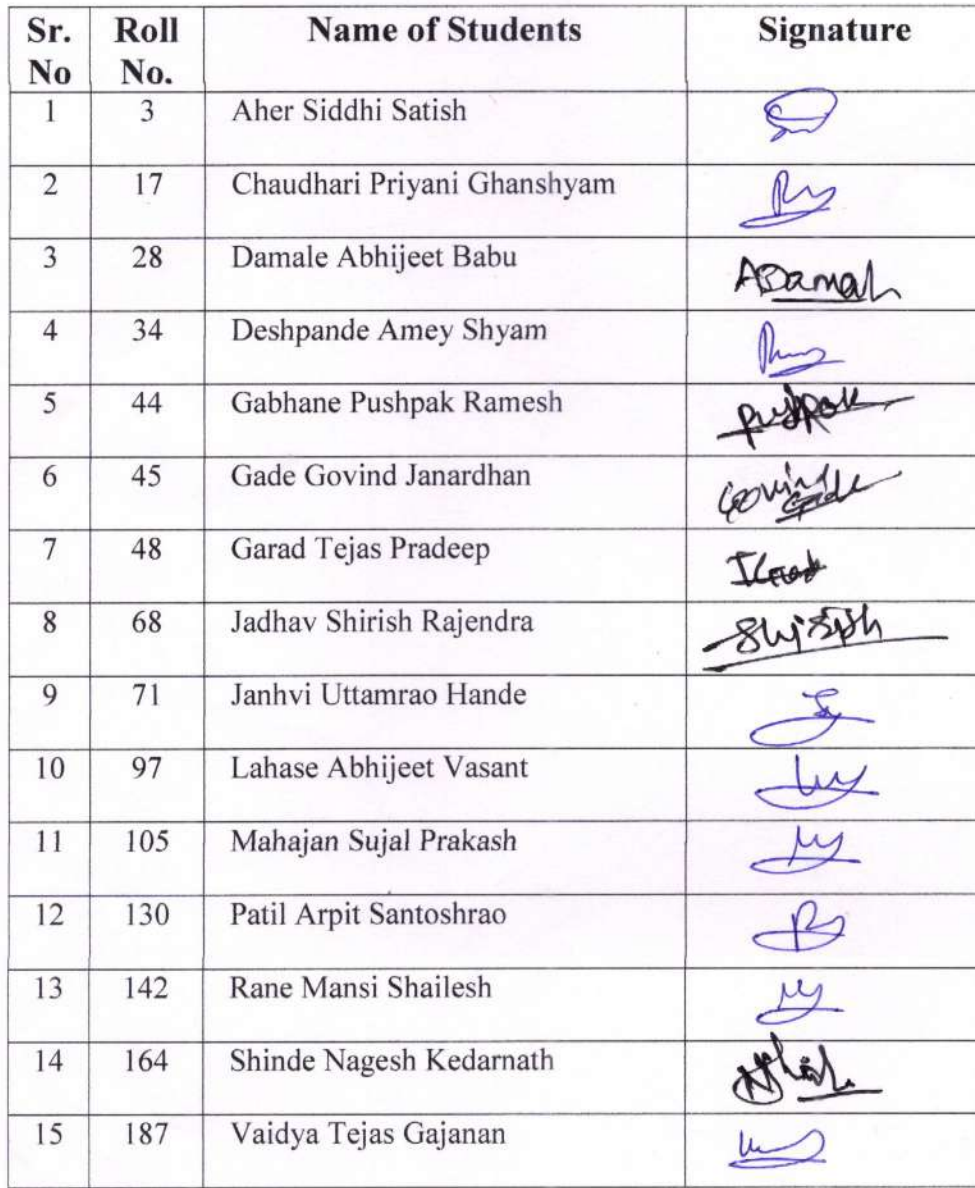 Sr. No Roll No. Name of Students Signature
1 3 Aher Siddhi Satish
2 17 Chaudhari Priyani Ghanshyam
3 28 Damale Abhijeet Babu ADamale
4 34 Deshpande Amey Shyam
5 44 Gabhane Pushpak Ramesh Pushpak
6 45 Gade Govind Janardhan Govind Gade
7 48 Garad Tejas Pradeep
8 68 Jadhav Shirish Rajendra
9 71 Janhvi Uttamrao Hande
10 97 Lahase Abhijeet Vasant
11 105 Mahajan Sujal Prakash
12 130 Patil Arpit Santoshrao
13 142 Rane Mansi Shailesh
14 164 Shinde Nagesh Kedarnath
15 187 Vaidya Tejas Gajanan